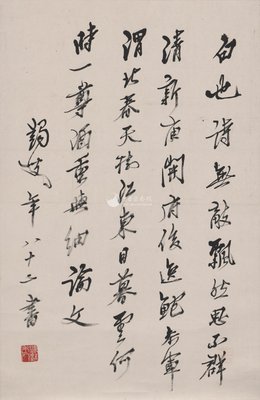 白也詩無敵飄然思不群
清新庾開府俊逸鮑參軍
渭北春天樹江東日暮雲何
時一尊酒重與細論文
蠲叟年八十二書